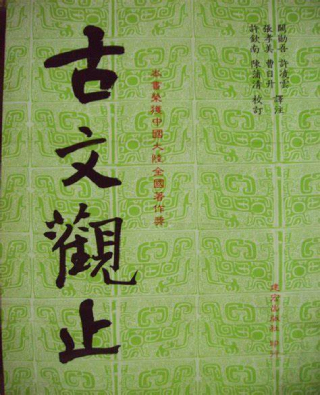 闕勛吾 許凌雲
張孝美 曹日升 譯注
許欽南 陳蒲清 校訂
本書榮獲中國大陸全國著作獎
古文觀止
建宏出版社